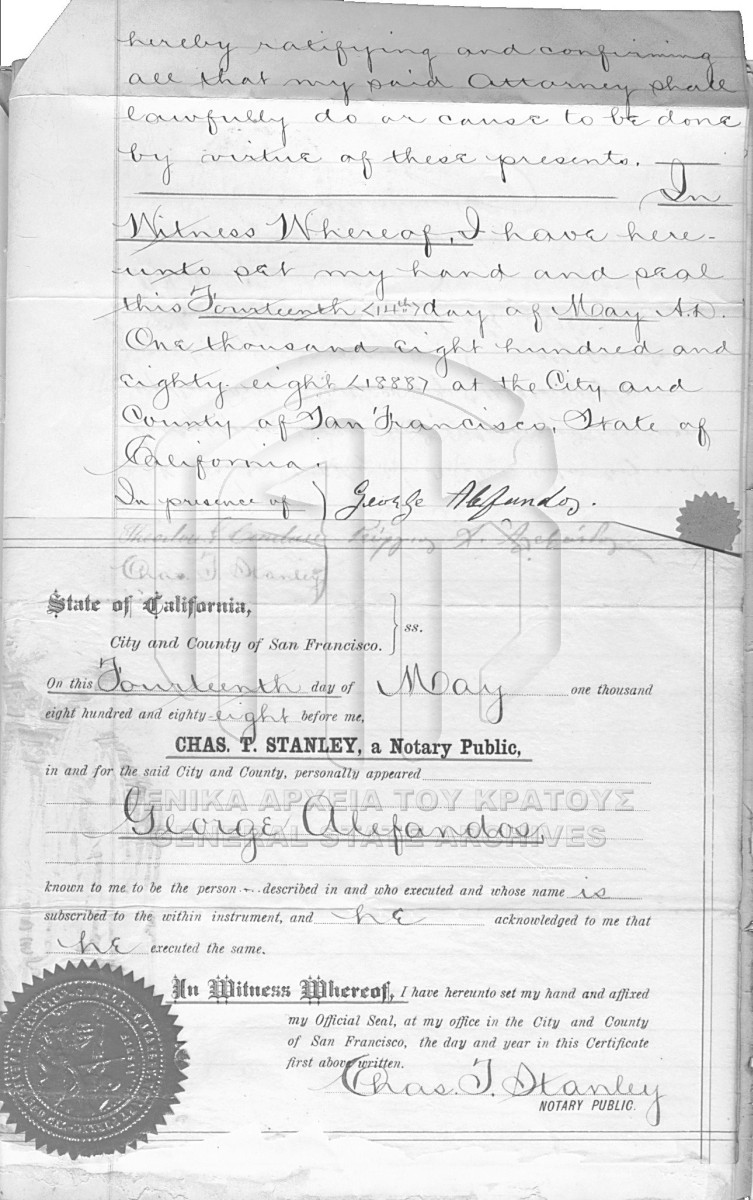 hereby ratifying and confirming
all that my said Attorney shall
lawfully do or cause to be done
by virtue of these presents.
In
Witness Whereof, I have here-
unto set my hand and seal
this Fourteenth <14th> day of May A.D.
One thousand eight hundred and
eighty-eight <1888> at the City and
County of San Francisco, State of
California.
In presence of } George Alefandos.
Chas. T. Stanley
State of California,
City and County of San Francisco. } ss.
On this Fourteenth day of May one thousand
eight hundred and eighty-eight before me,
CHAS. T. STANLEY, a Notary Public,
in and for the said City and County, personally appeared
ΓΕΝΙΚΑ ΑΡΧΕΙΑ ΤΟΥ ΚΡΑΤΟΥΣ
George Alefandos,
GENERAL STATE ARCHIVES
known to me to be the person described in and who executed and whose name is
subscribed to the within instrument, and he acknowledged to me that
he executed the same.
In Witness Whereof, I have hereunto set my hand and affixed
my Official Seal, at my office in the City and County
of San Francisco, the day and year in this Certificate
first above written.
Chas. T. Stanley
NOTARY PUBLIC.